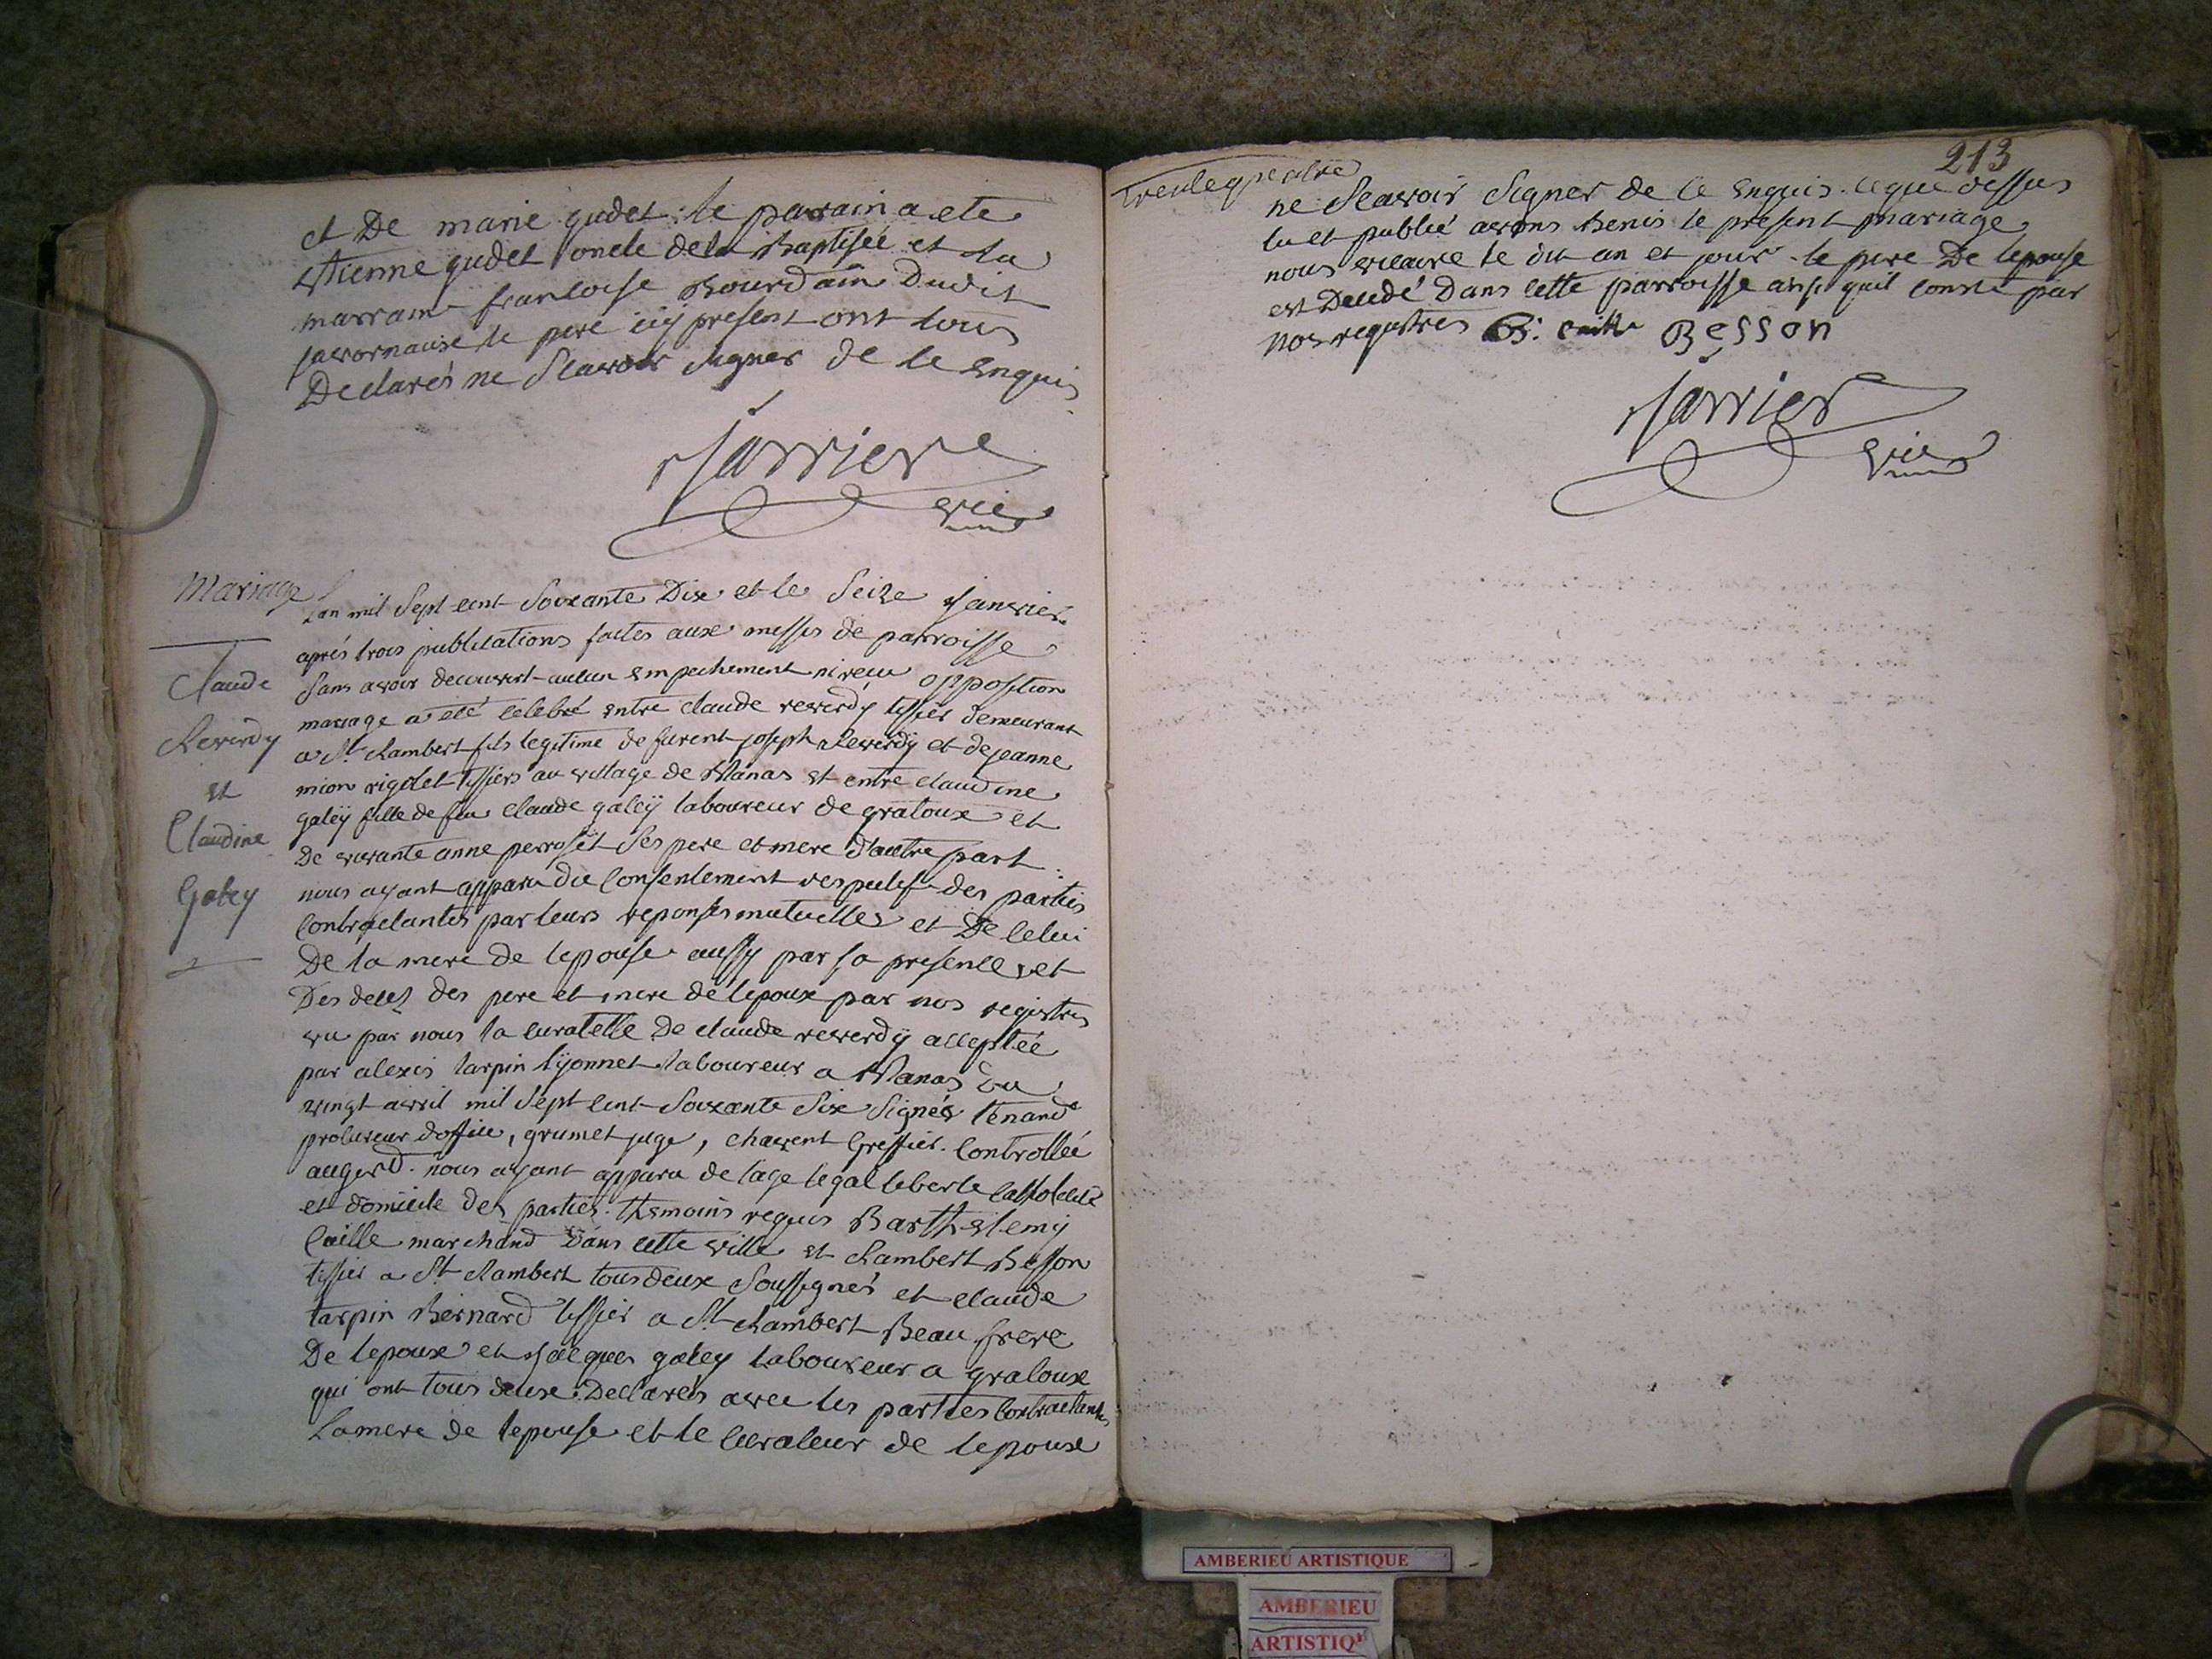 et De marie gudet : le parrain a ete
Etienne gudet oncle dela Baptisée et la
marraine francoise Bourdain Dudit
javornaux le pere icy present ont tous
Declarés ne Scavoir Signer de ce Enquis
Jarrier
vic
Mariage
Claude
Reverdy
et
Claudine
Galey
Lan mil Sept cent Soixante Dix et le Seize Janvier
après trois publications faites aux messes de parroisse
Sans avoir decouvert aucun Empechement ni reçu opposition
mariage a eté celebré entre claude reverdÿ tissier demeurant
a St Rambert fils legitime de furent joseph Reverdÿ et de jeanne
mion rigolet tissiers au village de Blanas et entre claudine
galeÿ fille de feu claude galeÿ laboureur de gratoux et
De vivante anne perroset Ses pere et mere d'autre part :
nous ayant apparu du Consentement respectif des parties
Contractantes par leurs reponses mutuelles et De Celui
De la mere de lepouse aussy par sa presence et
Des decez des pere et mere de lepoux par nos registres
vu par nous la curatelle De claude reverdÿ acceptée
par alexis tarpin lyonnet laboureur a Blanas du
vingt avril mil Sept cent Soixante Six Signés tenand
procureur doffice, grumet juge, chavent Greffier. Controllée
augerd. nous ayant apparu de l'age legal liberté catholicité
et domicile des parties. themoins requis Barthelemy
Caille marchand Dans cette ville et Rambert Besson
tissier a St Rambert tous deux Soussignés et claude
tarpin Bernard tissier a St Rambert Beau frere
De lepoux et Jacques galey laboureur a gratoux
qui ont tous deux Declarés avec les parties Contractantes
La mere de lepouse et le Curateur de lepoux
trentequatre
213
ne Scavoir Signer de ce Enquis. ce que dessus
lu et publié avons Benis le present mariage
nous vicaire le dit an et jour. le pere De lepouse
est Decedé Dans cette parroisse ainsi quil conste par
nos registres B. caille Besson
Jarrier
vic
AMBERIEU ARTISTIQUE
AMBERIEU
ARTISTIQ